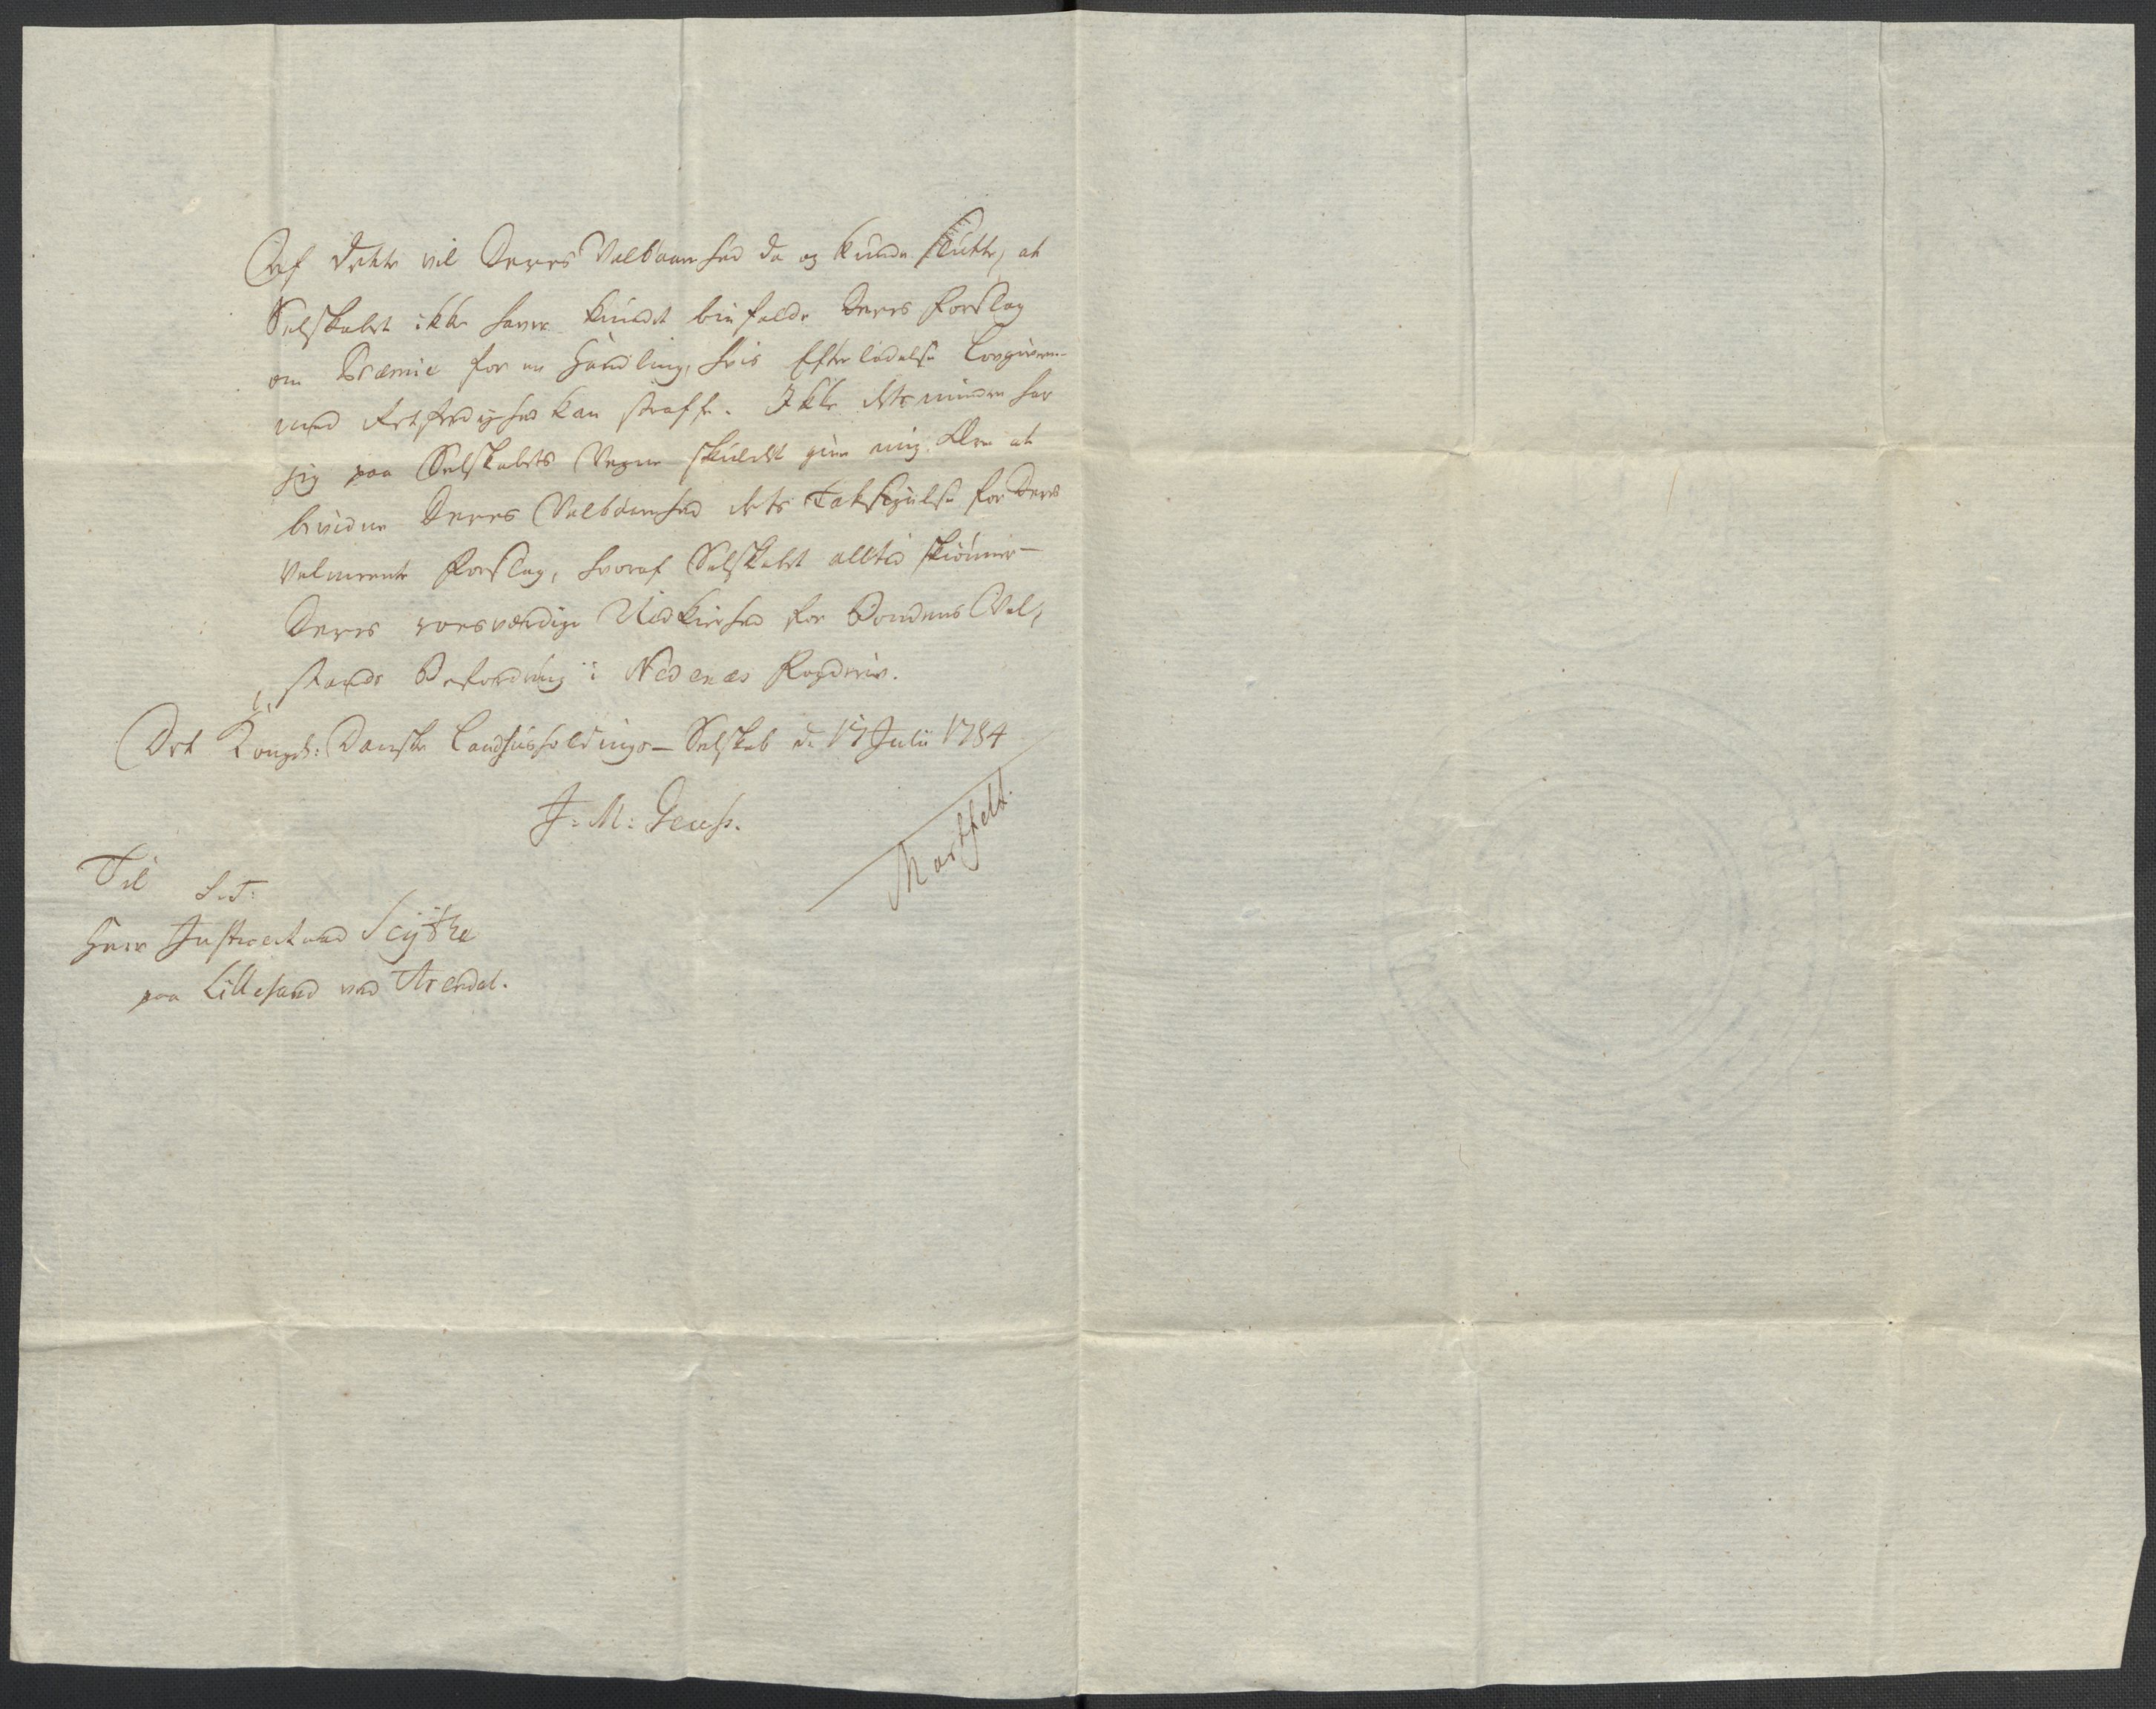 Af dette vil Deres Velbaarenhed da og kunde slutte, at
Selskabet ikke haver kundet biefalde Deres Forslag
om Præmie for en Handling, hvis Efterladelse Lovgiveren
med Retfærdighed kan straffe. Ikke detsmindre har
jeg paa Selskabets Vegne skuldet give mig den Ære at
bevidne Deres Velbaarenhed dets Taksigelse for Deres
velmeente Forslag, hvoraf Selskabet alltid skiønner
Deres roesværdige Nidkierhed for Bondens Vel,
stands Befordring i Nedenæs Fogderie.
Det Kongel: Danske Landhuusholdings-Selskab d. 17 Julii 1784
J: M: Geuss.
Martfelt.
Til
S. T:
Herr Justiceraad Scÿthe
paa Lillesand ved Arendal.